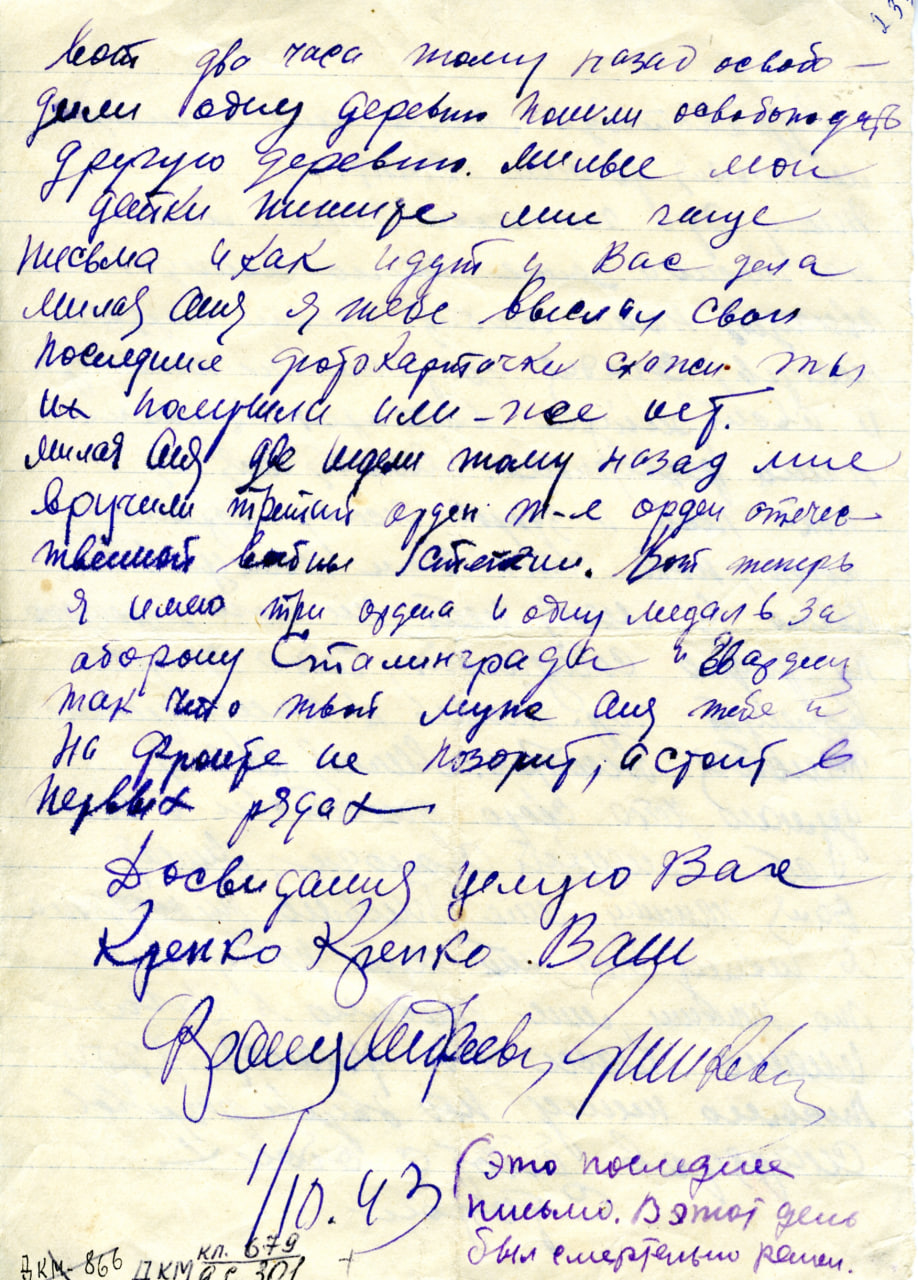 Вот два часа тому назад освобо-
дили одну деревню пошли освобождать
другую деревню. милые мои
детки пишите мне чаще
письма и как идут у Вас дела
милая Аня я тебе выслал свои
последние фотокарточки скажи ты
их получила или-же нет.
милая Аня две недели тому назад мне
вручили третий орден т-е орден отечес-
твенной войны степени. Вот теперь
я имею три ордена и одну медаль за
оборону Сталинграда и Гвардеец
так что твой муж Аня тебе и
на фронте не позорит, а стоит в
первых рядах
Досвидания целую Вас
Крепко Крепко. Ваш
1/10.43
(это последнее
письмо. В этот день
был смертельно ранен.
ДКМ-866 ДКМ кп. 679
301